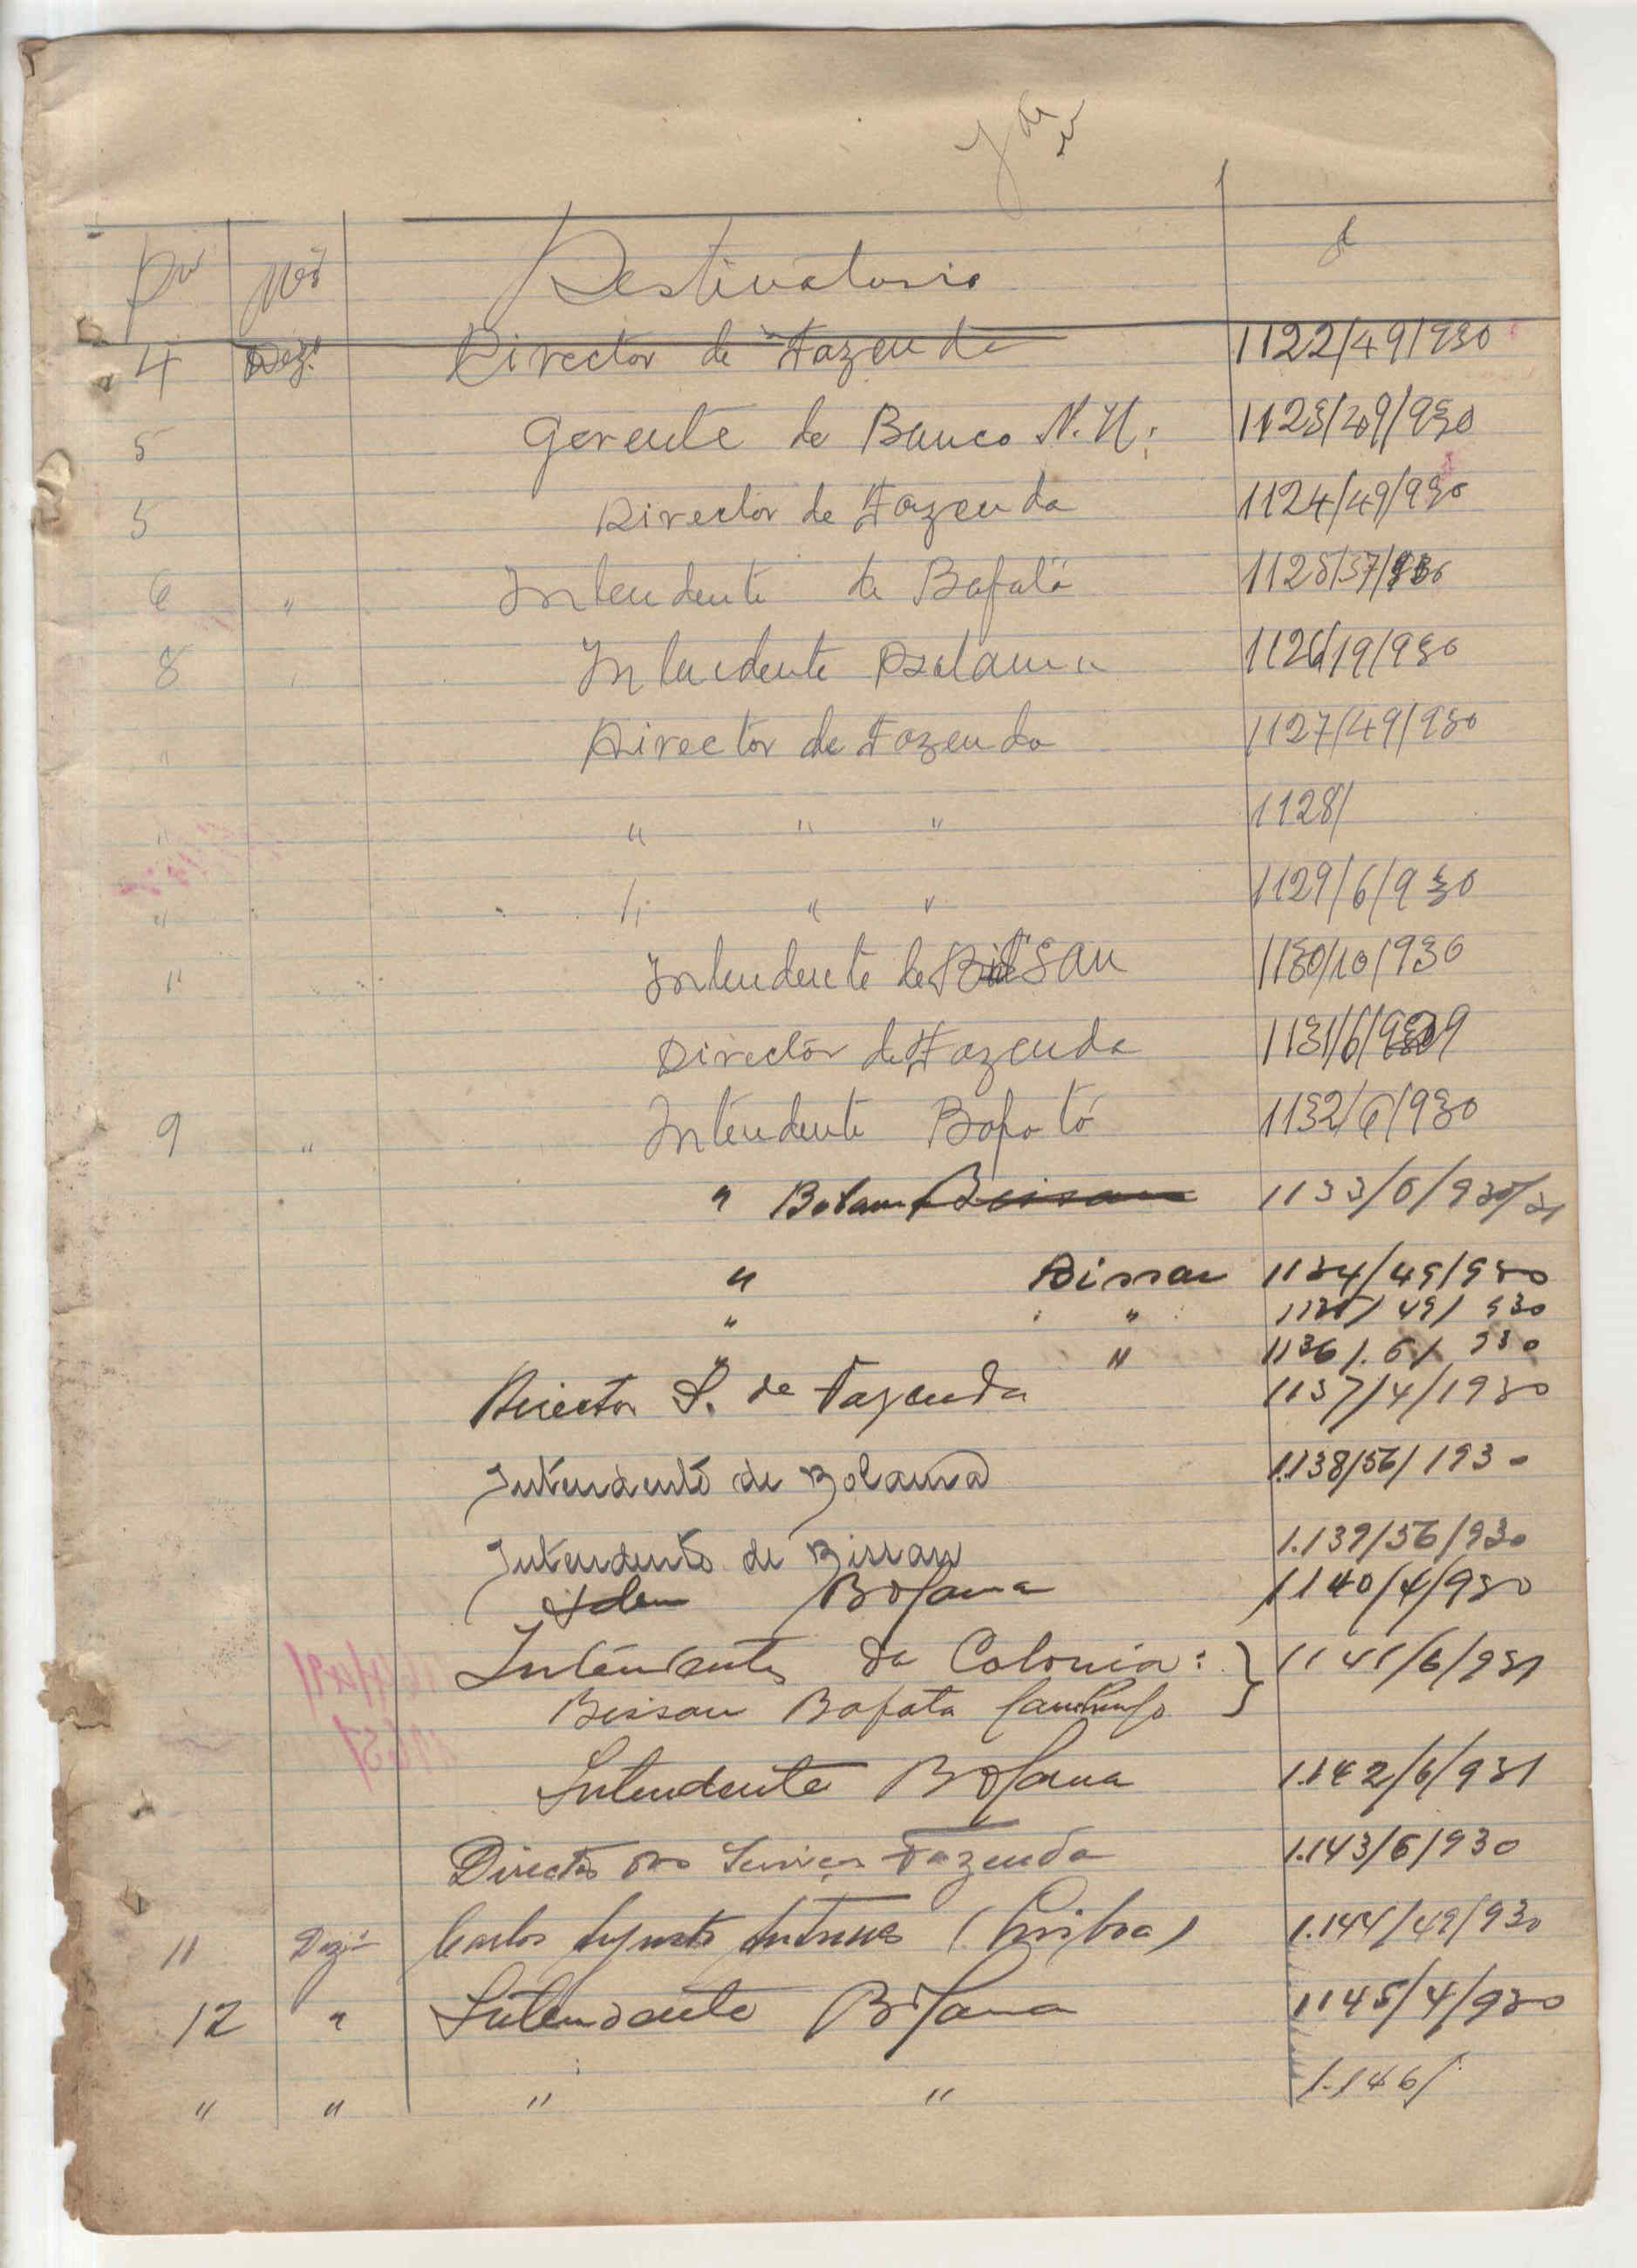 Dia Mês Destinatario
4 Dez.º Director de Fazenda 1122/49/930
5 Gerente do Banco N. U. 1123/49/930
5 Director de Fazenda 1124/49/930
6 " Intendente de Bafatá 1125/37/930
8 " Intendente Bolama 1126/19/930
" Director de Fazenda 1127/49/930
" " " " 1128/
" " " " 1129/6/930
" Intendente de Bissau 1130/10/930
Director de Fazenda 1131/6/929
9 " Intendente Bafatá 1132/6/930
" Bolama Bissau 1133/6/930/31
" Bissau 1134/49/930
" " 1135/49/930
" " 1136/.6/ 930
Director S. de Fazenda 1137/4/1930
Intendente de Bolama 1.138/56/1930
Intendente de Bissau 1.139/56/930
Idem Bolama 1140/4/930
Intendentes da Colonia: } 1141/6/931
Bissau Bafata Canchungo
Intendente Bolama 1.142/6/931
Director dos Serviços Fazenda 1.143/6/930
11 Dezº Carlos Augusto Antunes (Lisboa) 1.144/49/930
12 " Intendente Bolama 1145/4/930
" " " " 1.146/